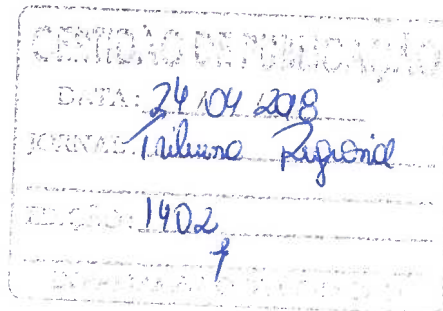 CERTIDÃO DE PUBLICAÇÃO
DATA: 24/04/2018
JORNAL: Tribuna Regional
EDIÇÃO: 1402